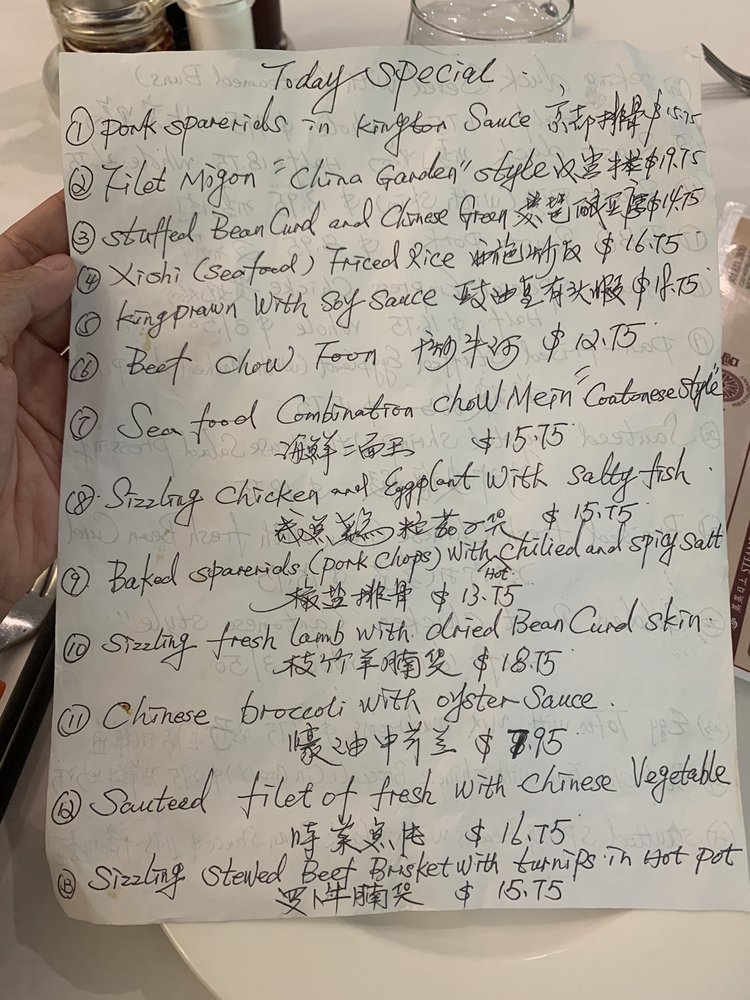 Today special
① pork spareribs in kington Sauce 京都排骨 $15.75
② Filet Mogon "China Garden" style 汉宫牛柳 $19.75
③ stuffed Bean Curd and Chinese Green $14.75
④ Xishi (seafood) Friced Rice 西施炒饭 $16.75
⑤ king prawn With Soy Sauce 豉油皇有头虾 $18.75
⑥ Beef Chow Foon 干炒牛河 $12.75
⑦ Sea food Combination chow Mein "Coatonese style"
海鲜二面王 $15.75
⑧ Sizzling Chicken and Eggplant With Salty fish.
咸魚鷄粒茄子煲 $15.75
⑨ Baked sparerids (pork chops) with chilied and spicy salt
Hot
椒盐排骨 $13.75
⑩ Sizzling fresh lamb with dried Bean Curd skin.
枝竹羊腩煲 $18.75
⑪ Chinese broccoli with oyster Sauce.
蠔油中芥兰 $7.95
⑫ Sauteed filet of fresh with Chinese Vegetable
時菜魚片 $16.75
⑬ Sizzling Stewed Beef Brisket with turnips in Hot pot
罗卜牛腩煲 $15.75